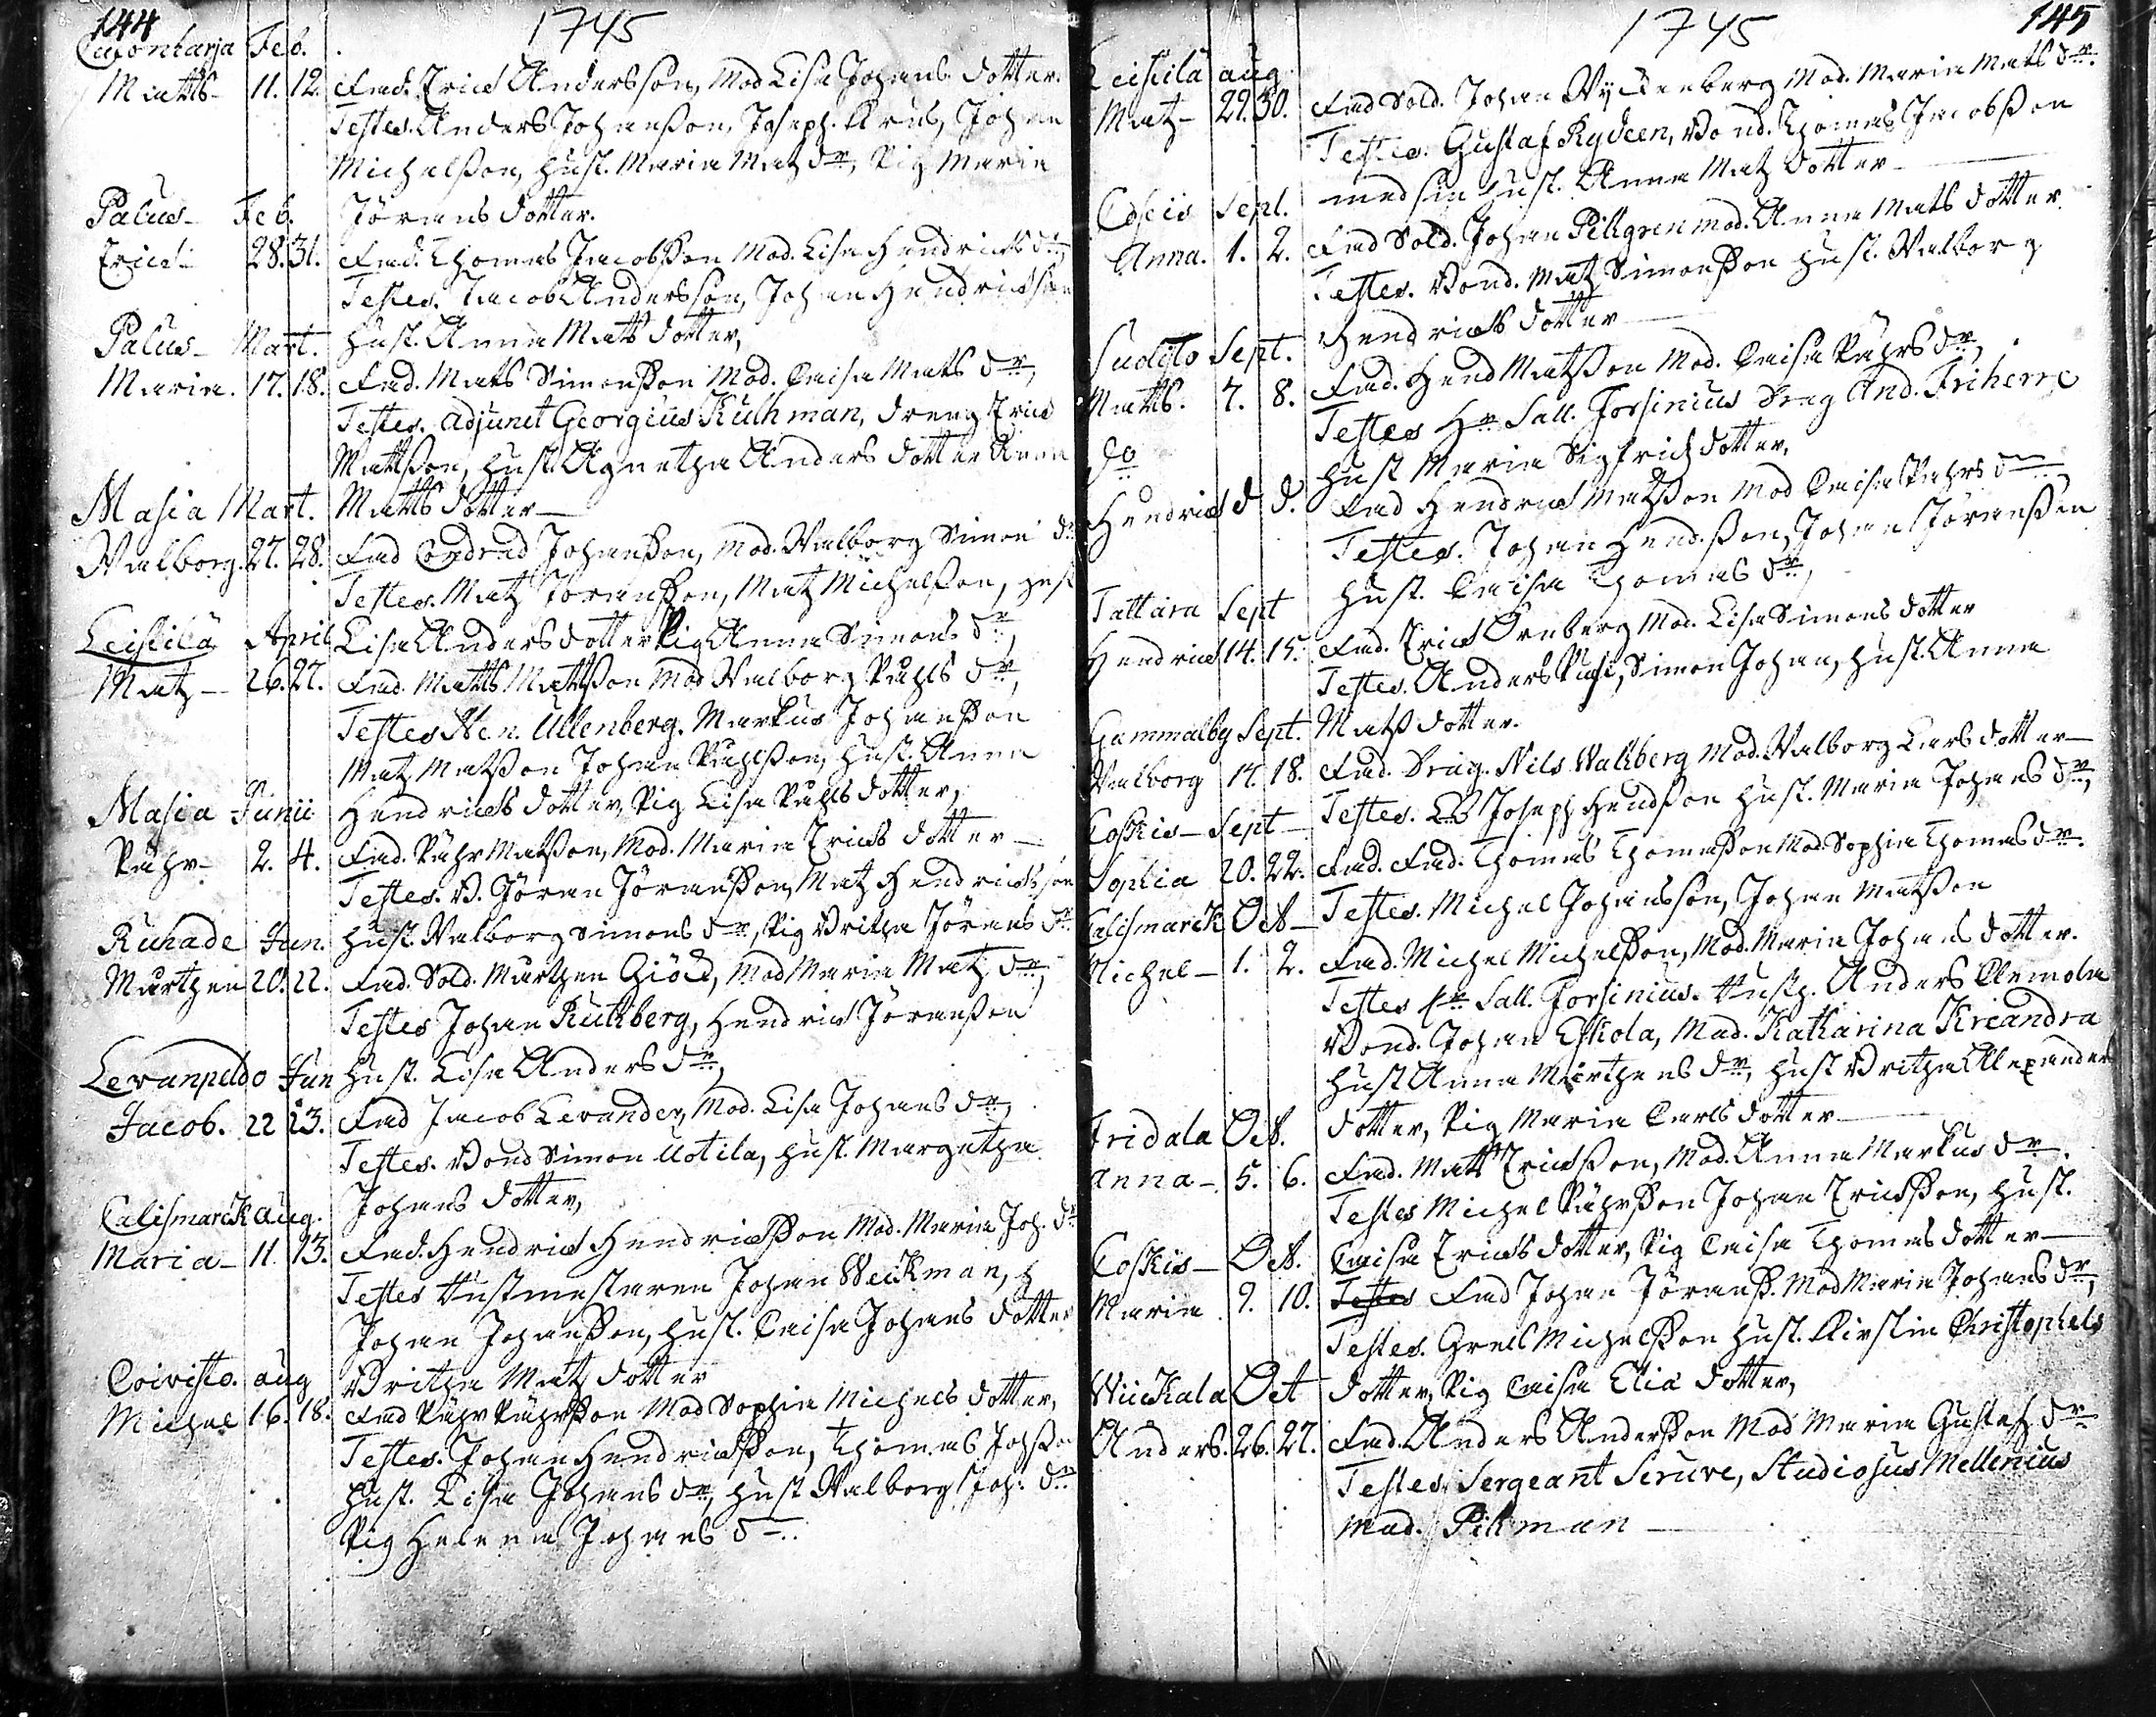 144
1745
Cutonharja Feb.
Matts 11. 12. Fad. Erich Andersson, Mod Lisa Johans dotter.
Testes. Anders Johansson, Joseph Johan
Michelsson, Hust. Maria Matz dr, Pig Maria
Jörans dotter.
Palus Feb.
Erich 28. 31. Fad. Thomas Jacobsson Mod. Lisa Hendrichs dr,
Testes. Jacob Andersson, Johan Hendrichsson
Hust. Anna Mats dotter,
Palus Mart.
Maria. 17. 18. Fad. Mats Simonsson Mod. Caisa Mats dr,
Testes. Adjunct Georgius Kuthman, dreng Erich
Mattsson, Hust. Agnetha Anders dotter Anna
Matts dotter
Masia Mart.
Walborg. 27. 28. Fad Condrad Johansson, Mod. Walborg Simons dr
Testes. Matz Joransson, Matz Michelsson, Hust
Lisa Anders dotter Pig Anna Simons dr,
Leistilä April
Matz 26. 27. Fad. Matts Mattsson Mod Walborg Påhls dr,
Testes Ullenberg. Markus Johansson
Matz Matsson Johan Påhlsson, Hust. Anna
Hendrichs dotter, Pig Lisa Påhls dotter,
Masia Junii
Påhr 2. 4. Fad. Påhr Matsson, Mod. Maria Erichs dotter
Testes. B. Jöran Jöransson, Matz Hendrichsson
Hust. Walborg Simons dr, Pig Britha Jörans dr
Ruhade Jun.
Mårthen 20. 22. Fad. Sold. Mårthen Giöck, Mod Maria Matz dr,
Testes Johan Ruthberg, Hendrich Jöransson
Hust. Lisa Anders dr,
Levanpeldo Jun
Jacob. 22 23. Fad Jacob Levander, Mod. Lisa Johans dr,
Testes. Bond Simon Uotila, Hust. Margetha
Johans dotter,
Calismarck aug.
Maria 11. 13. Fad. Hendrich Hendrichsson Mod. Maria Joh. dr
Testes Rustmestaren Johan Weckman,
Johan Johansson, Hust. Caisa Johans dotter
Britha Matz dotter
Coivisto. aug
Michel 16. 18. Fad Påhr Påhrsson Mod Sophia Michels dotter,
Testes. Johan Hendrichsson, Thomas
Hust. Lisa Johans dr, Hust Walborg Joh: dr
Pig Helena Johans dr.
145
1745
Leistilä aug.
Matz 29. 30. Fad Sold. Johan Mod. Maria Mats dr.
Testes. Gustaf Rydeen, Bond. Thomas Jacobsson
med sin Hust. Anna Matz dotter
Coskis Sept.
Anna. 1. 2. Fad Sold. Johan Pillgren Mod. Anna Mats dotter.
Testes. Bond. Matz Simonsson Hust. Walborg
Hendrichs dotter
Sudisto Sept.
Matts. 7. 8. Fad. Hend Matsson Mod. Caisa Påhrs dr,
Testes Hr Sall. Forsinius Drag And. Friherre
Hust Maria Sigfrids dotter,
do
Hendrich d d. Fad Hendrich Matsson Mod Caisa Påhrs dr
Testes. Johan Hendsson, Johan Jöransson
Hust. Caisa Thomas dr,
Tattara Sept
Hendrich 14. 15. Fad. Erich Örnberg Mod. Lisa Simons dotter
Testes. Anders Simon Johan, Hust. Anna
Mats dotter.
Gammalby Sept.
Walborg 17. 18. Fad. Drag. Nils Wahlberg Mod. Walborg Lars dotter
Testes. Joseph Hendsson Hust. Maria Johans dr,
Coskis Sept
Sophia 20. 22. Fad. Fad. Thomas Thomasson Mod. Sophia Thomas dr.
Testes. Michel Johansson, Johan Matsson
Calismarck Oct
Michel 1. 2. Fad. Michel Michelsson, Mod. Maria Johans dotter.
Testes Hr Sall. Forsinius. Anders
Bond. Johan Eskola, Mad. Katharina Kreandra
Hust Anna Mårthens dr, Hust Britha Alexanders
dotter, Pig Maria Carls dotter
Fridala Oct.
Anna 5. 6. Fad. Matts Erichsson, Mod. Anna Markus dr.
Testes Michel Påhrsson Johan Erichsson, Hust.
Caisa Erichs dotter, Pig Caisa Thomas dotter
Coskis Oct.
Maria 9. 10. Testes Fad Johan Jöranss. Mod Maria Johans dr,
Testes. Grells Michelsson Hust. Kirstin Christophels
dotter, Pig Caisa Elia dotter,
Wiickala Oct
Anders. 26. 27. Fad. Anders Andersson Mod Maria Gustaf dr
Testes Sergeant Scruve, Studiosus Mellenius
Mad. Pihman